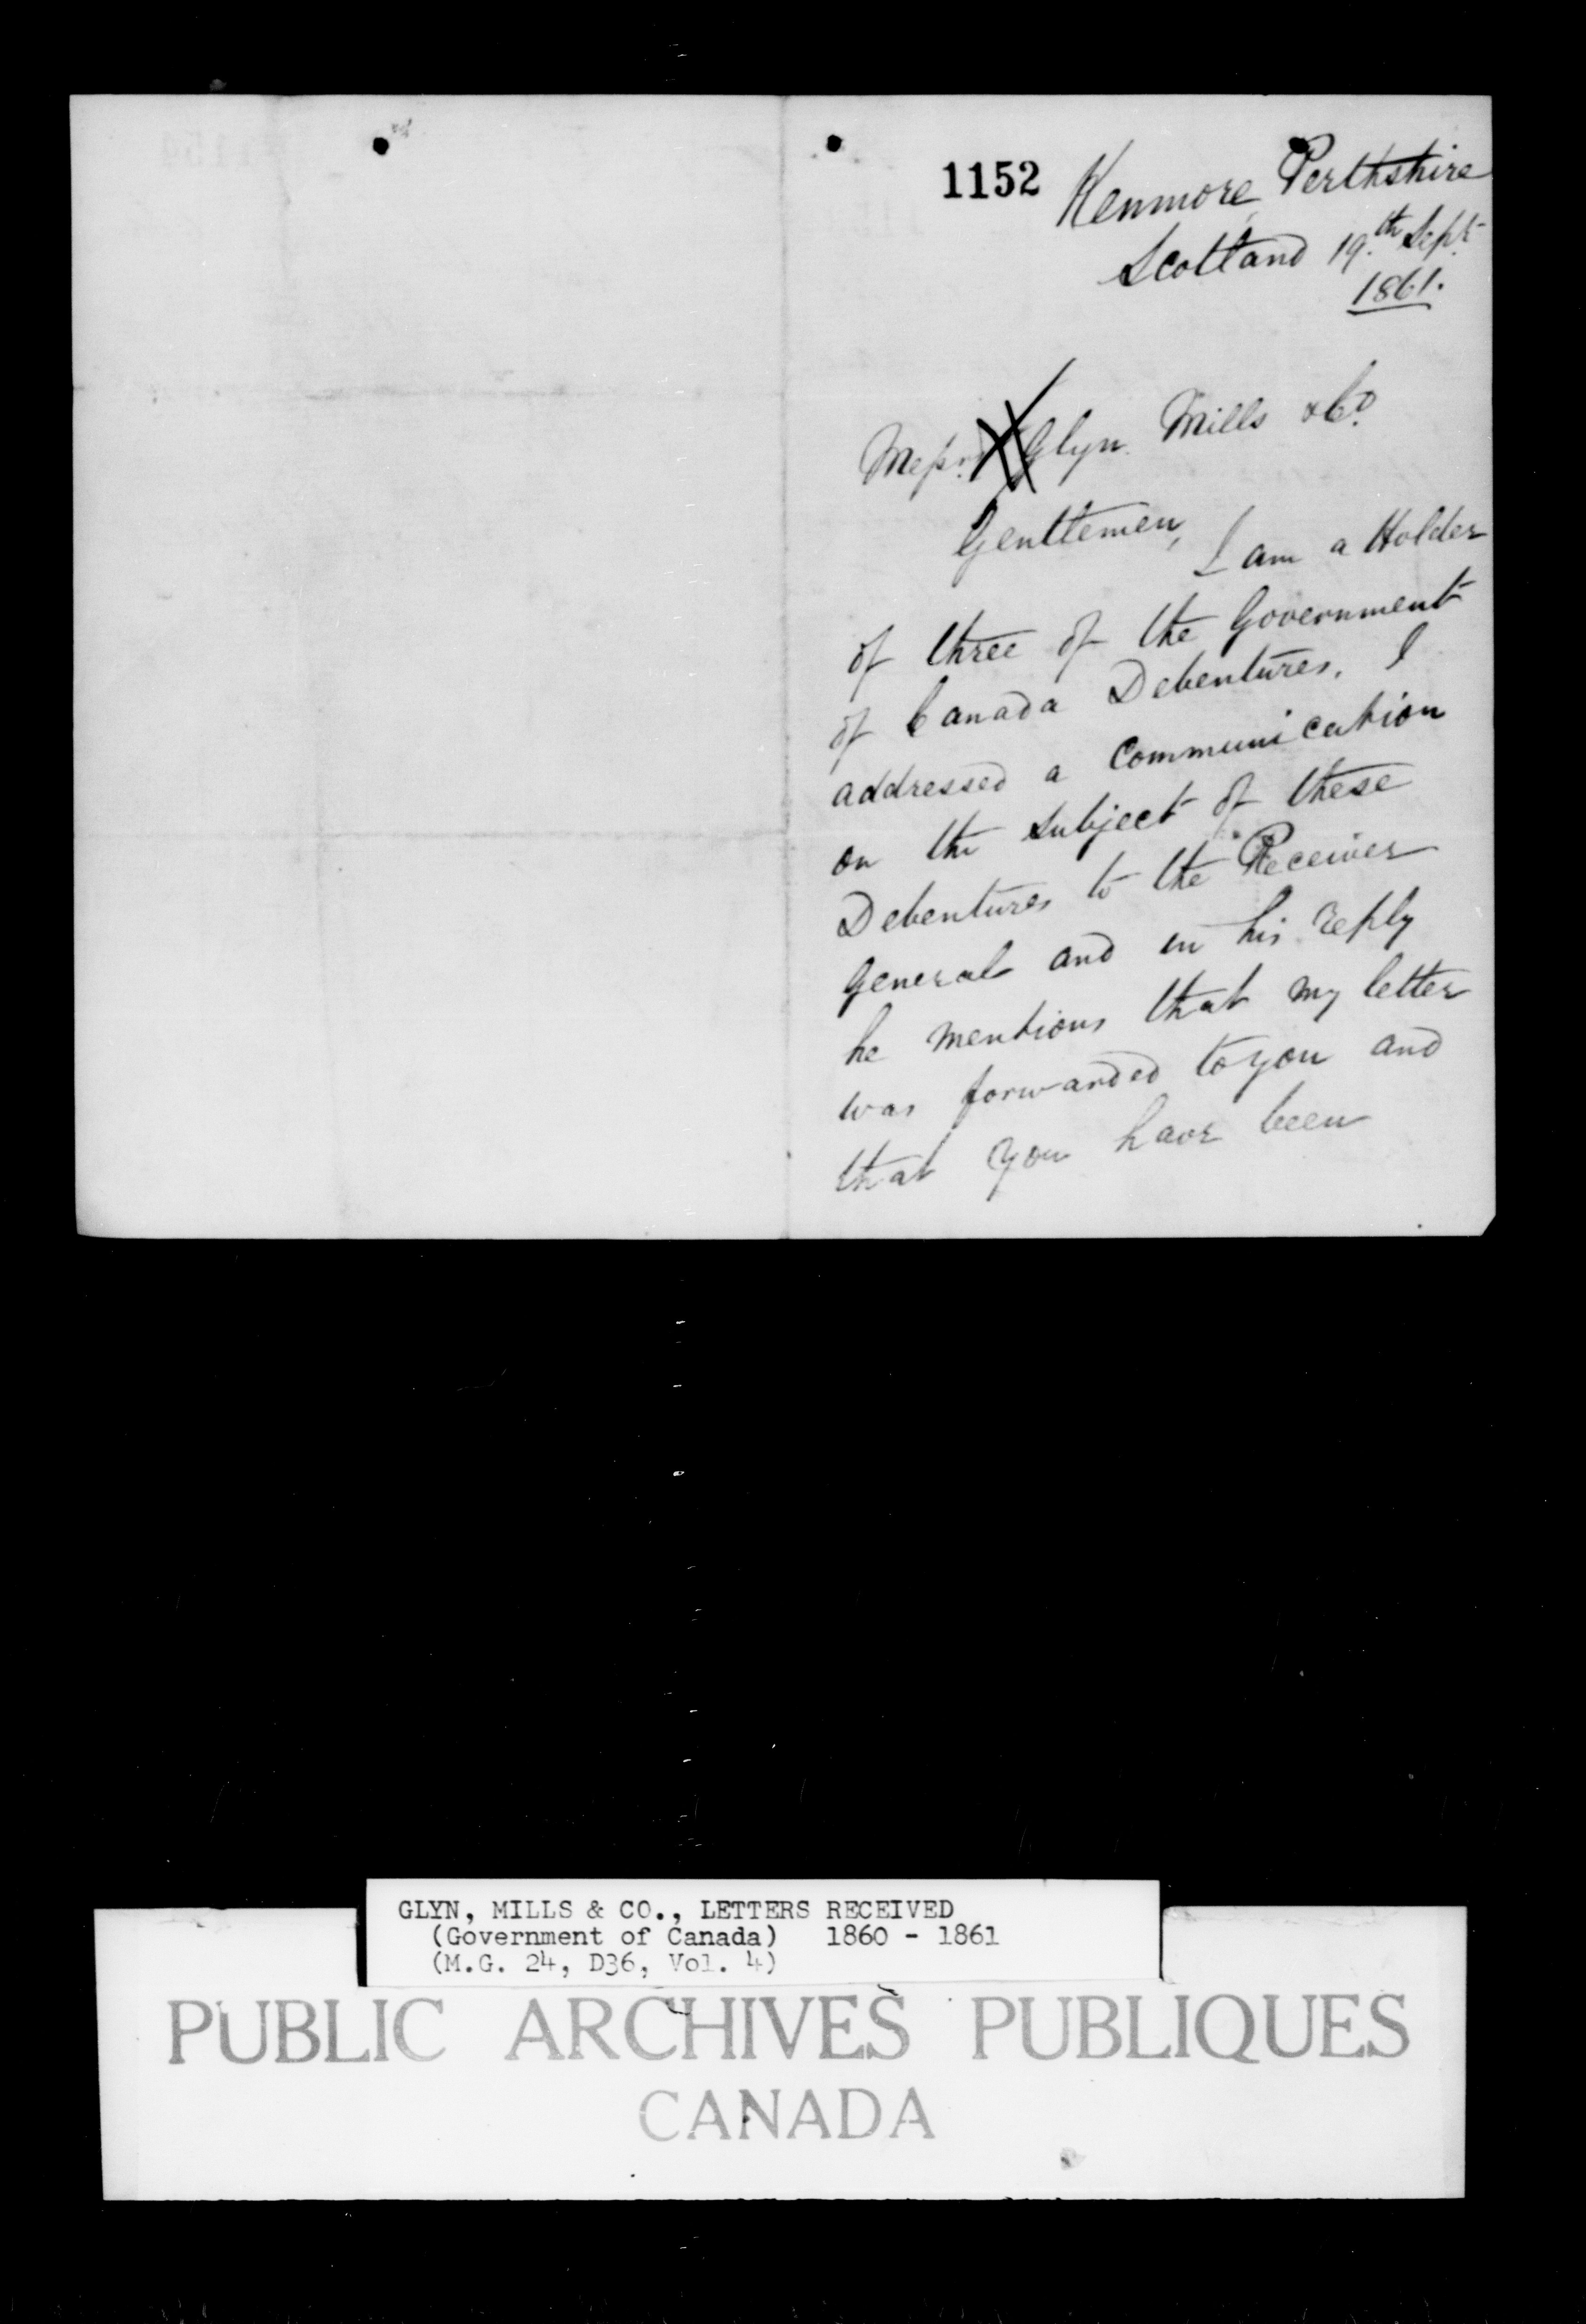 1152
Kenmore, Perthshire
Scotland 19.th Sept.
1861.
Messrs. Glyn Mills & Co.
Gentlemen,
I am a Holder
of three of the Government
of Canada Debentures. I
addressed a Communication
on the subject of these
Debentures to the Receiver
General and in his reply
he mentions that my letter
was forwarded to you and
that you have been
GLYN, MILLS & CO., LETTERS RECEIVED
(Government of Canada) 1860 - 1861
(M.G. 24, D36, Vol. 4)
PUBLIC ARCHIVES PUBLIQUES
CANADA